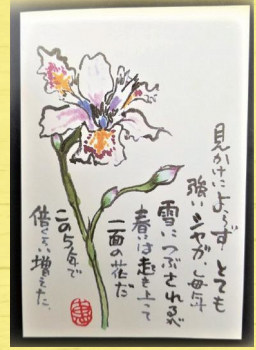 見かけによらず とても
強いシャガ。毎年
雪につぶされるが
春には起き上って
一面の花だ
この5年で
倍ぐらい増えた